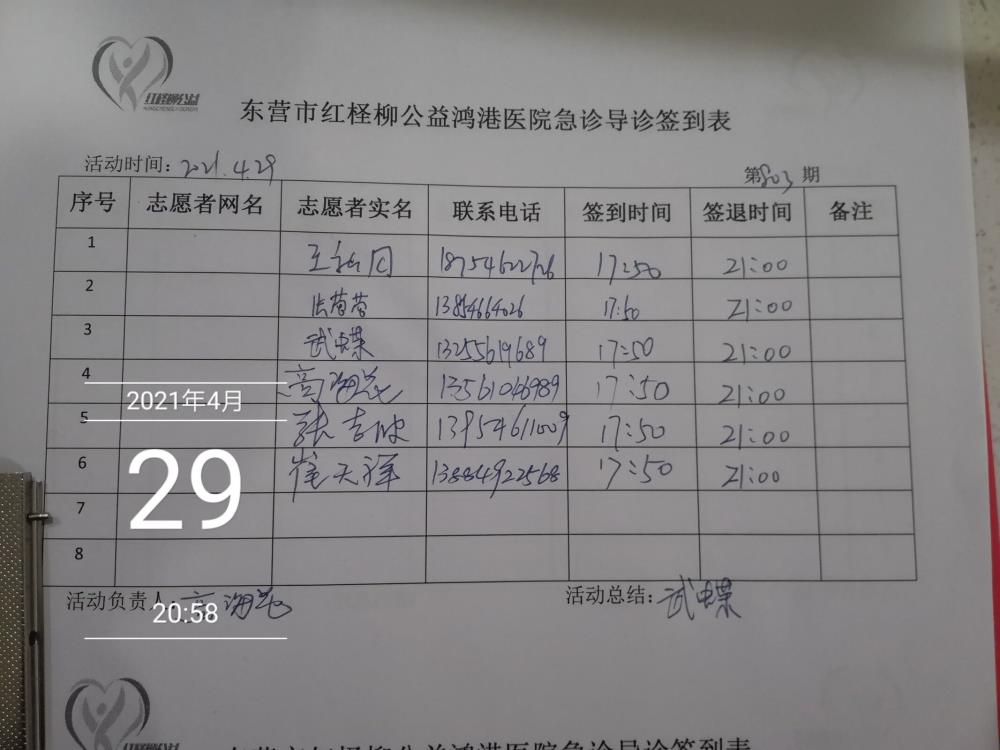 红柽柳公益
东营市红柽柳公益鸿港医院急诊导诊签到表
活动时间：2021.4.29 第803期
序号 志愿者网名 志愿者实名 联系电话 签到时间 签退时间 备注
1 18754622726 17:50 21:00
2 13854664026 17:50 21:00
3 武蝶 13255619689 17:50 21:00
4 高海花 13561046989 17:50 21:00
5 张吉波 13954611009 17:50 21:00
6 崔天祥 13884922568 17:50 21:00
7
8
活动负责人：高海花 活动总结：武蝶
2021年4月
29
20:58
红柽柳公益
东营市红柽柳公益鸿港医院急诊导诊签到表